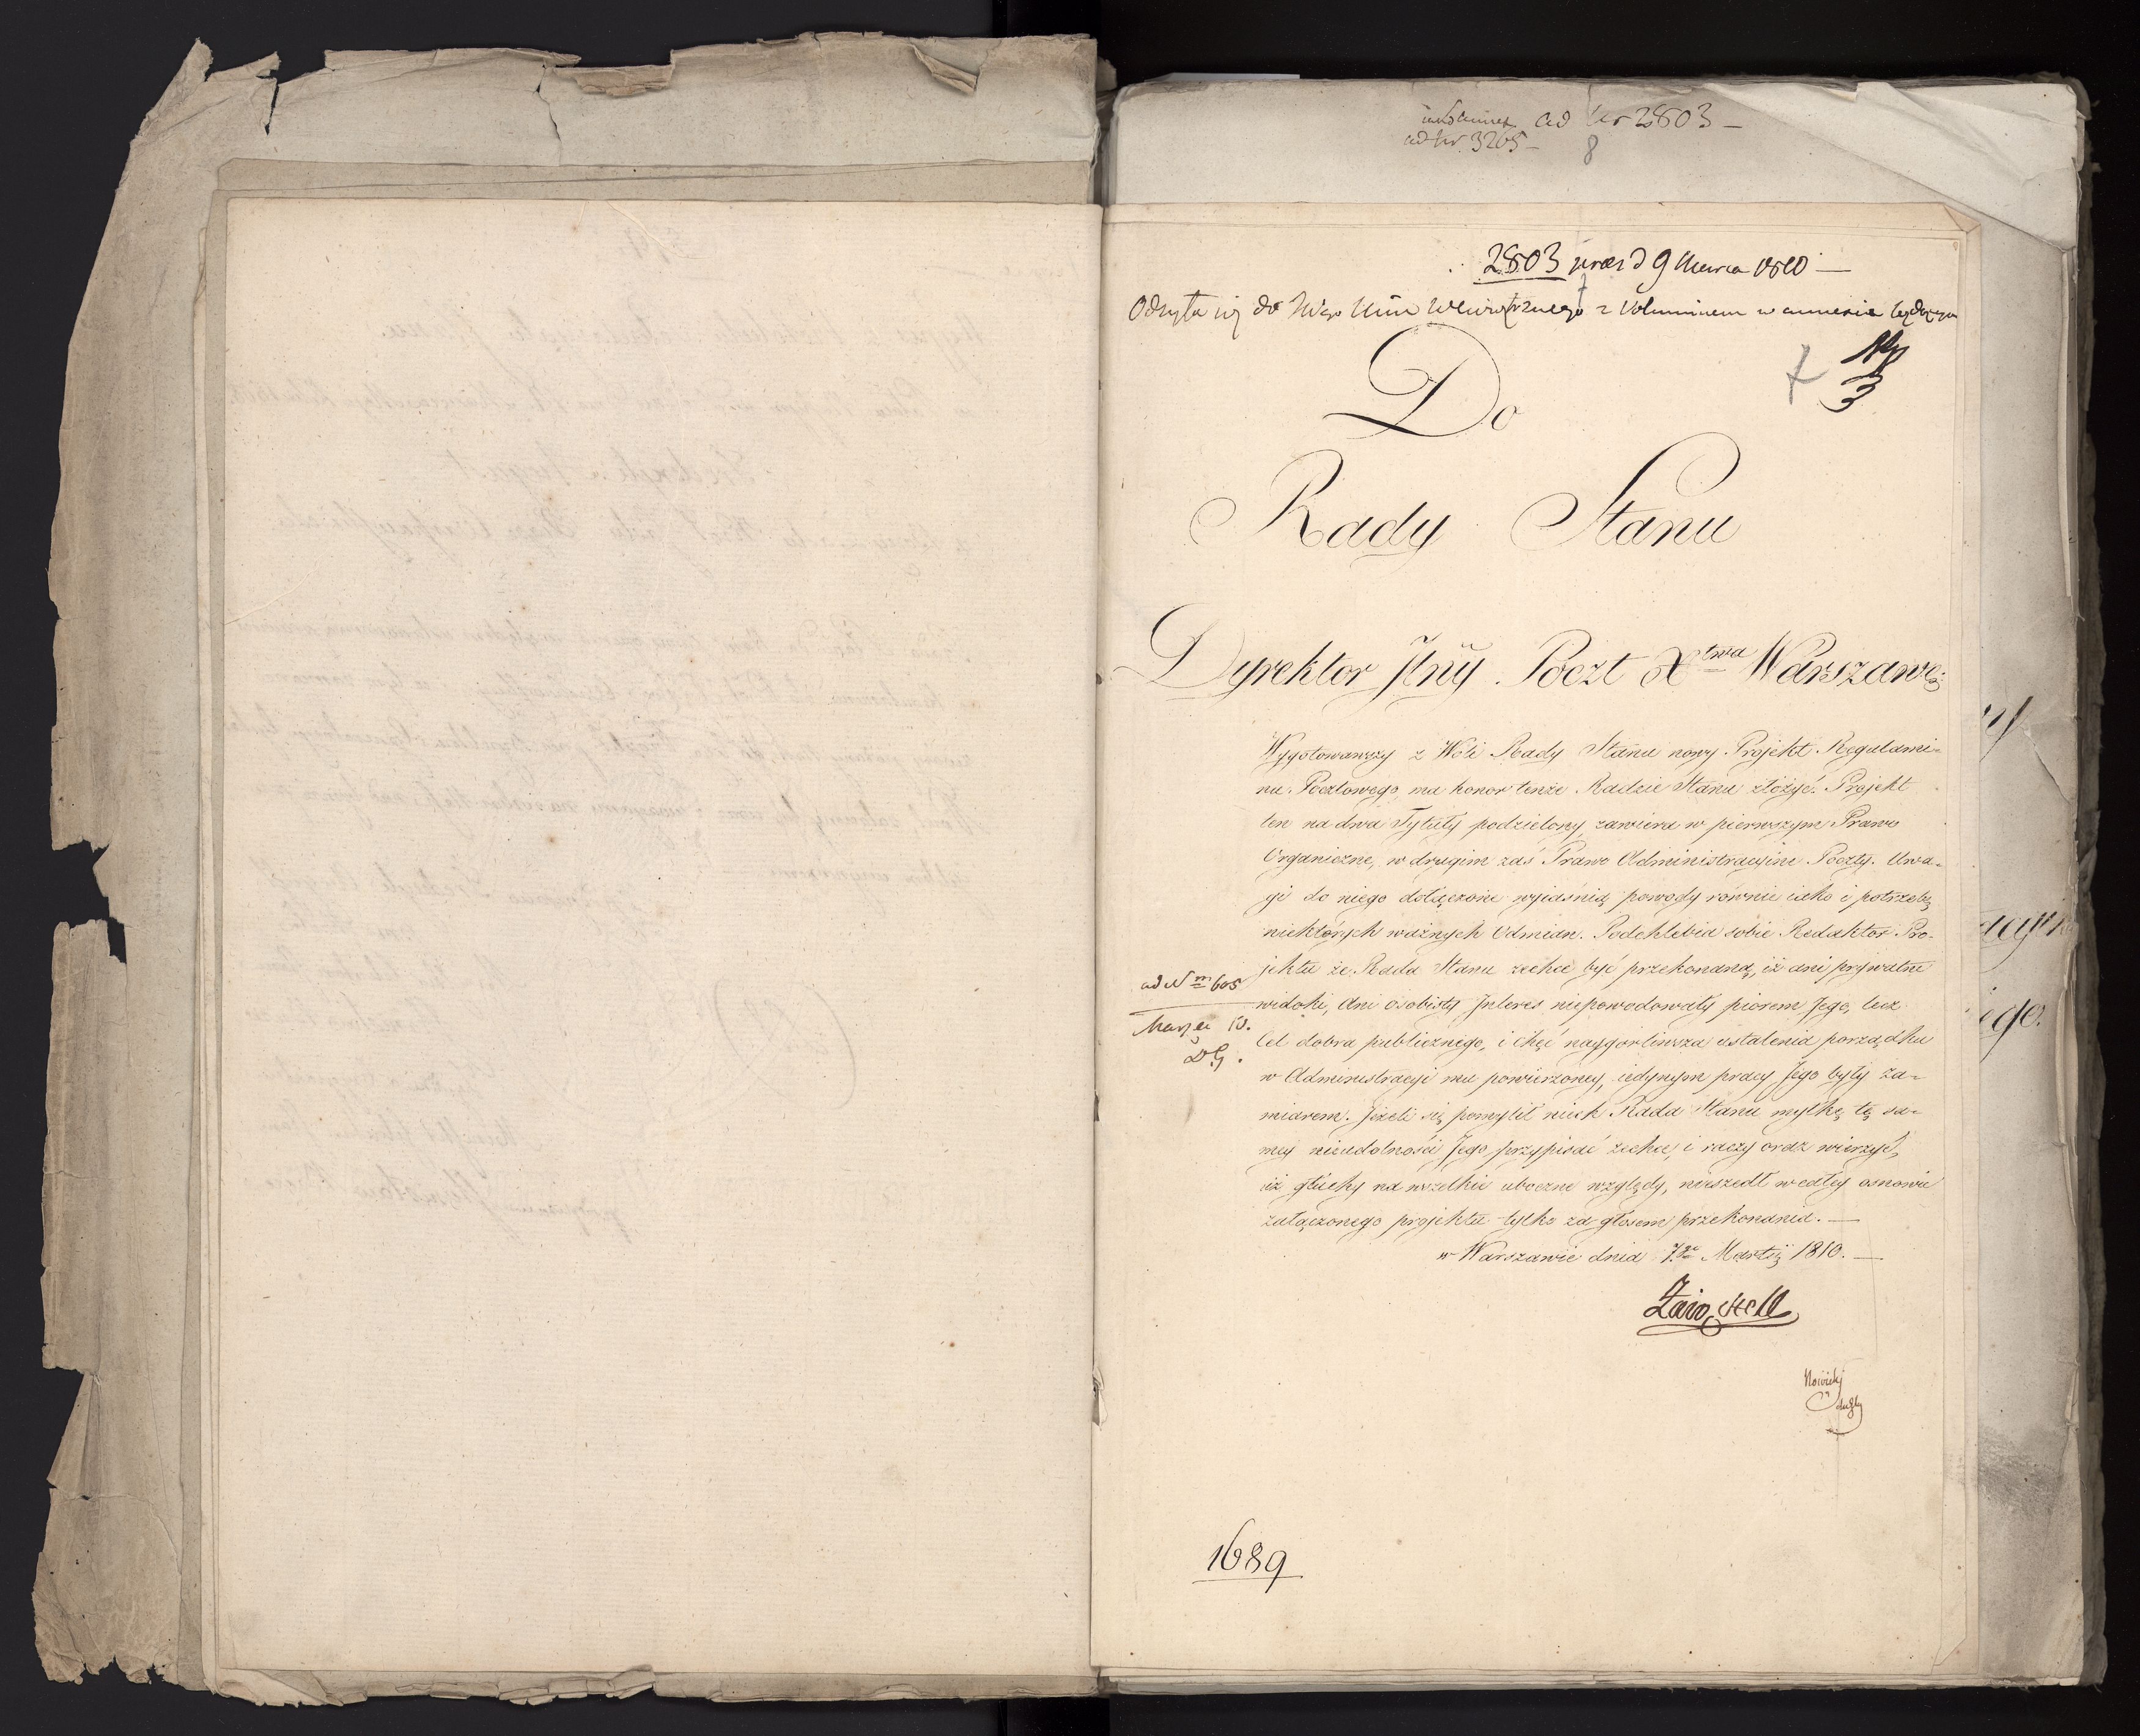 ad Nr 2803 –
ad Nr. 3265 –
8
2803 praes d 9 Marca 1810 –
Odsyła się do Mgo Min Wewnętrznego z Voluminem w annexie będącym
3
Do
Rady Stanu
Dyrektor Jlny Poczt Xtwa Warszawę:
Wygotowawszy z Woli Rady Stanu nowy Projekt Regulami-
nu Pocztowego, ma honor tenże Radzie Stanu złożyć. Projekt
ten na dwa Tytuły podzielony, zawiera w pierwszym Prawo
Organiczne, w drugim zaś Prawo Administracyine Poczty. Uwa-
gi do niego dołączone wyiaśnią powody równie iako i potrzebę
niektórych ważnych Odmian. Podchlebia sobie Redaktor Pro-
jektu że Rada Stanu zechce być przekonaną, iż ani prywatne
widoki, ani osobisty Interes niepowodowały piorem Jego, lecz
Cel dobra publicznego, i chęć naygorliwsza ustalenia porządku
w Administracyi mu powierzoney, iedynym pracy Jego były za-
miarem. Jeżeli się pomylił niech Rada Stanu myłkę tę sa-
mey nieudolności Jego przypisać zechce, i raczy oraz wierzyć,
iż głuchy na wszelkie uboczne względy, nieszedł w całey osnowie
załączonego projektu tylko za głosem przekonania. —
w Warszawie dnia 7go Martii 1810. —
ad Nm 605
Marzec 10.
D.G.
Zaiączek
Nowicki
1689